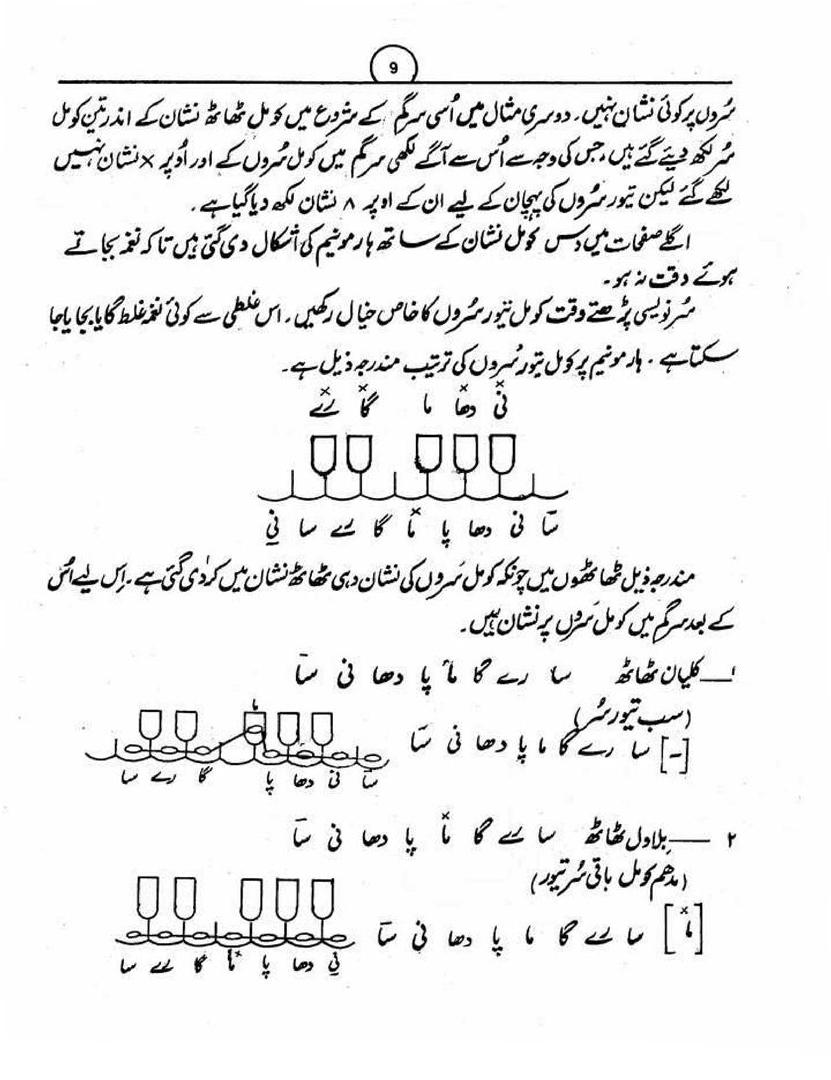 9
سُروں پر کوئی نشان نہیں۔ دوسری مثال میں اُسی سرگم کے شروع میں کومل ٹھاٹھ نشان کے اندر تین کومل
سُر لکھ دیئے گئے ہیں، جس کی وجہ سے اُس سے آگے لکھی سرگم میں کومل سُروں کے اور اُوپر × نشان نہیں
لکھے گئے لیکن تیور سُروں کی پہچان کے لیے ان کے اوپر ۸ نشان لکھ دیا گیا ہے۔
اگلے صفحات میں دس کومل نشان کے ساتھ ہارمونیم کی اشکال دی گئی ہیں تاکہ نغمہ بجاتے
ہوئے دقت نہ ہو۔
سُر نویسی پڑھتے وقت کومل تیور سُروں کا خاص خیال رکھیں۔ اس غلطی سے کوئی نغمہ غلط گایا بجایا جا
سکتا ہے۔ ہارمونیم پر کومل تیور سُروں کی ترتیب مندرجہ ذیل ہے۔
رے× گا× ما دھا× نی×
نی سا رے گا ما× پا دھا نی سا
مندرجہ ذیل ٹھاٹھوں میں چونکہ کومل سُروں کی نشان دہی ٹھاٹھ نشان میں کر دی گئی ہے۔ اِس لیے اُس
کے بعد سرگم میں کومل سُروں پر نشان نہیں۔
۱ — کلیان ٹھاٹھ سا رے گا ما پا دھا نی سا
(سب تیور سُر)
[-] سا رے گا ما پا دھا نی سا
ما
سا رے گا پا دھا نی سا
۲ — بلاول ٹھاٹھ سا رے گا ما× پا دھا نی سا
(مدھم کومل باقی سُر تیور)
[ما×] سا رے گا ما پا دھا نی سا
سا رے گا ما× پا دھا نی